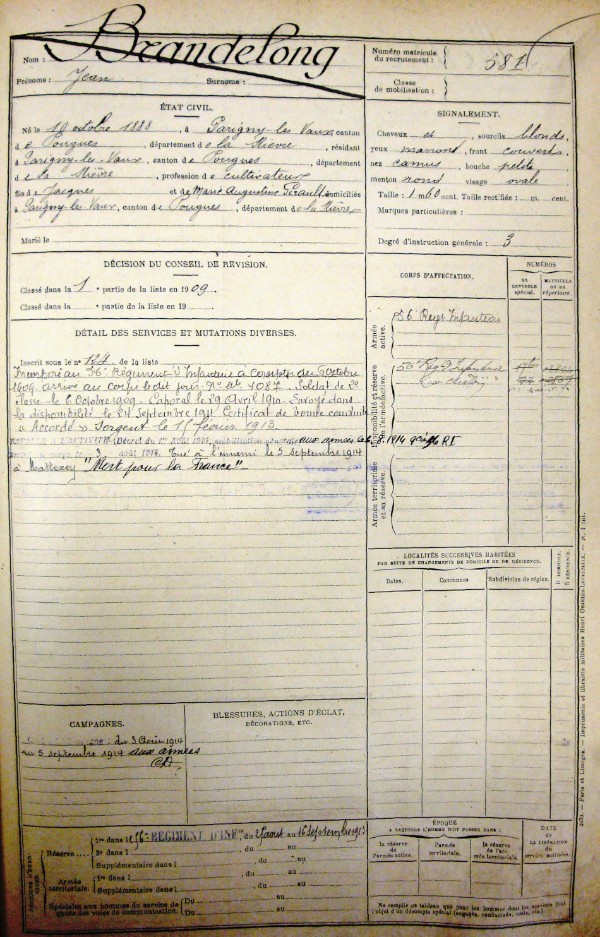 Nom : Brandelong
Prénoms : Jean Surnome :
Numéro matricule du recrutement : 581
Classe de mobilisation :
ÉTAT CIVIL.
Né le 10 octobre 1888, à Parigny-les-Vaux, canton
de Pougues, département de la Nièvre, résidant
à Parigny-les-Vaux, canton de Pougues, département
de la Nièvre, profession de cultivateur
fils de Jacques et de Marie Augustine domiciliés
à Parigny-les-Vaux, canton de Pougues, département de la Nièvre.
Marié le
SIGNALEMENT.
Cheveux et sourcils blonds
yeux marrons, front couvert
nez camus, bouche petite
menton rond visage ovale
Taille : 1 m 60 cent. Taille rectifiée : m. cent.
Marques particulières :
Degré d'instruction générale : 3
DÉCISION DU CONSEIL DE RÉVISION.
Classé dans la 1 e partie de la liste en 1909.
Classé dans la e partie de la liste en 19
DÉTAIL DES SERVICES ET MUTATIONS DIVERSES.
Inscrit sous le n° 124 de la liste
Incorporé au 56e Régiment d'Infanterie à compter du 6 Octobre
1909, arrivé au corps le dit jour, No Mle 4087. Soldat de 2e
classe le 6 Octobre 1909. Caporal le 29 Avril 1910. Envoyé dans
la disponibilité le 24 Septembre 1911. Certificat de bonne conduite
« Accordé » Sergent le 1er février 1913.
(Décret du 1er août 1914, mobilisation générale) aux armées
3 août 1914. Tué à l'ennemi le 5 septembre 1914
à Mattexey "Mort pour la France"
CORPS D'AFFECTATION.
NUMÉROS
AU CONTRÔLE spécial.
MATRICULE OU AU répertoire.
Armée active.
56e Régt Infanterie
Disponibilité et réserve de l'armée active.
56e Rég d'Infanterie
Armée territoriale et sa réserve.
LOCALITÉS SUCCESSIVES HABITÉES
PAR SUITE DE CHANGEMENTS DE DOMICILE OU DE RÉSIDENCE.
Dates. Communes Subdivision de région. D DOMICILE. R RÉSIDENCE.
CAMPAGNES.
du 3 Août 1914
au 5 septembre 1914 aux armées
CD
BLESSURES, ACTIONS D'ÉCLAT,
DÉCORATIONS, ETC.
Réserve
1re dans le 56e RÉGIMENT D'INFie du 25 août au 16 Septembre 1913
2e dans l du au
Supplémentaire dans l du au
Armée territoriale.
1re dans l du au
Supplémentaire dans l du au
Spéciales aux hommes du service de garde des voies de communication.
Du au
Du au
ÉPOQUE
A LAQUELLE L'HOMME DOIT PASSER DANS :
la réserve de l'armée active. l'armée territoriale. la réserve de l'armée territoriale.
DATE DE LA LIBÉRATION du service militaire.
Ne remplir ce tableau que pour les hommes dont les services font
l'objet d'un décompte spécial (engagés, condamnés, omis, etc.)